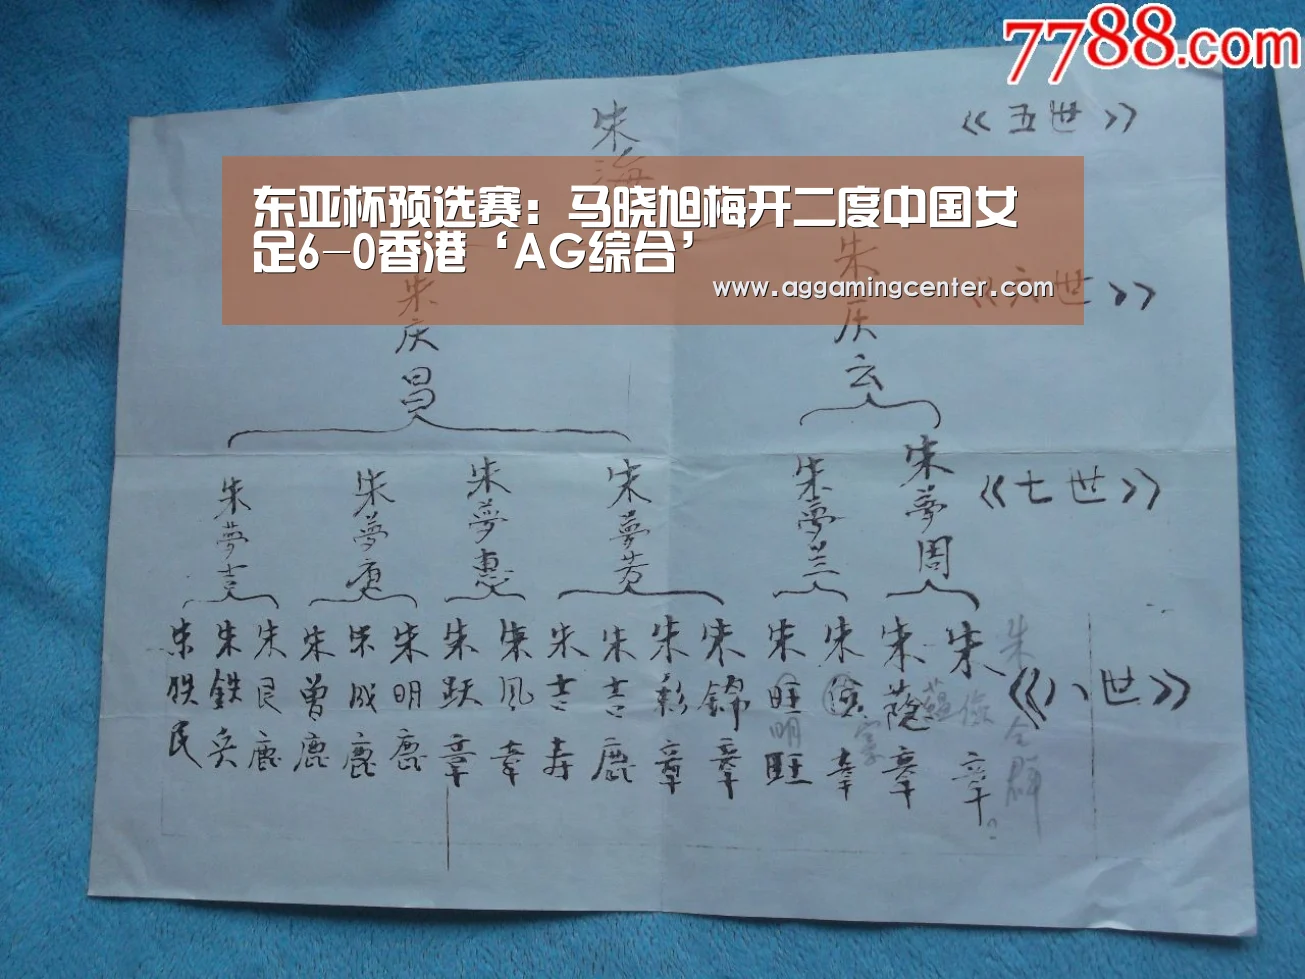 7788.com
朱海
《五世》
东亚杯预选赛：马晓旭梅开二度中国女
足6-0香港‘AG综合’
www.aggamingcenter.com
朱庆昌
朱庆云
《六世》
朱夢吉
朱夢
朱夢惠
朱夢芳
朱夢兰
朱夢周
《七世》
朱鉄民
朱鉄英
朱良鹿
朱曾鹿
朱成鹿
朱明鹿
朱跃章
朱凤章
朱吉寿
朱吉鹿
朱彰章
朱錦章
朱旺旺
明
朱儉章
家
朱蔭章
蘊
朱章
儉
朱全群
《八世》